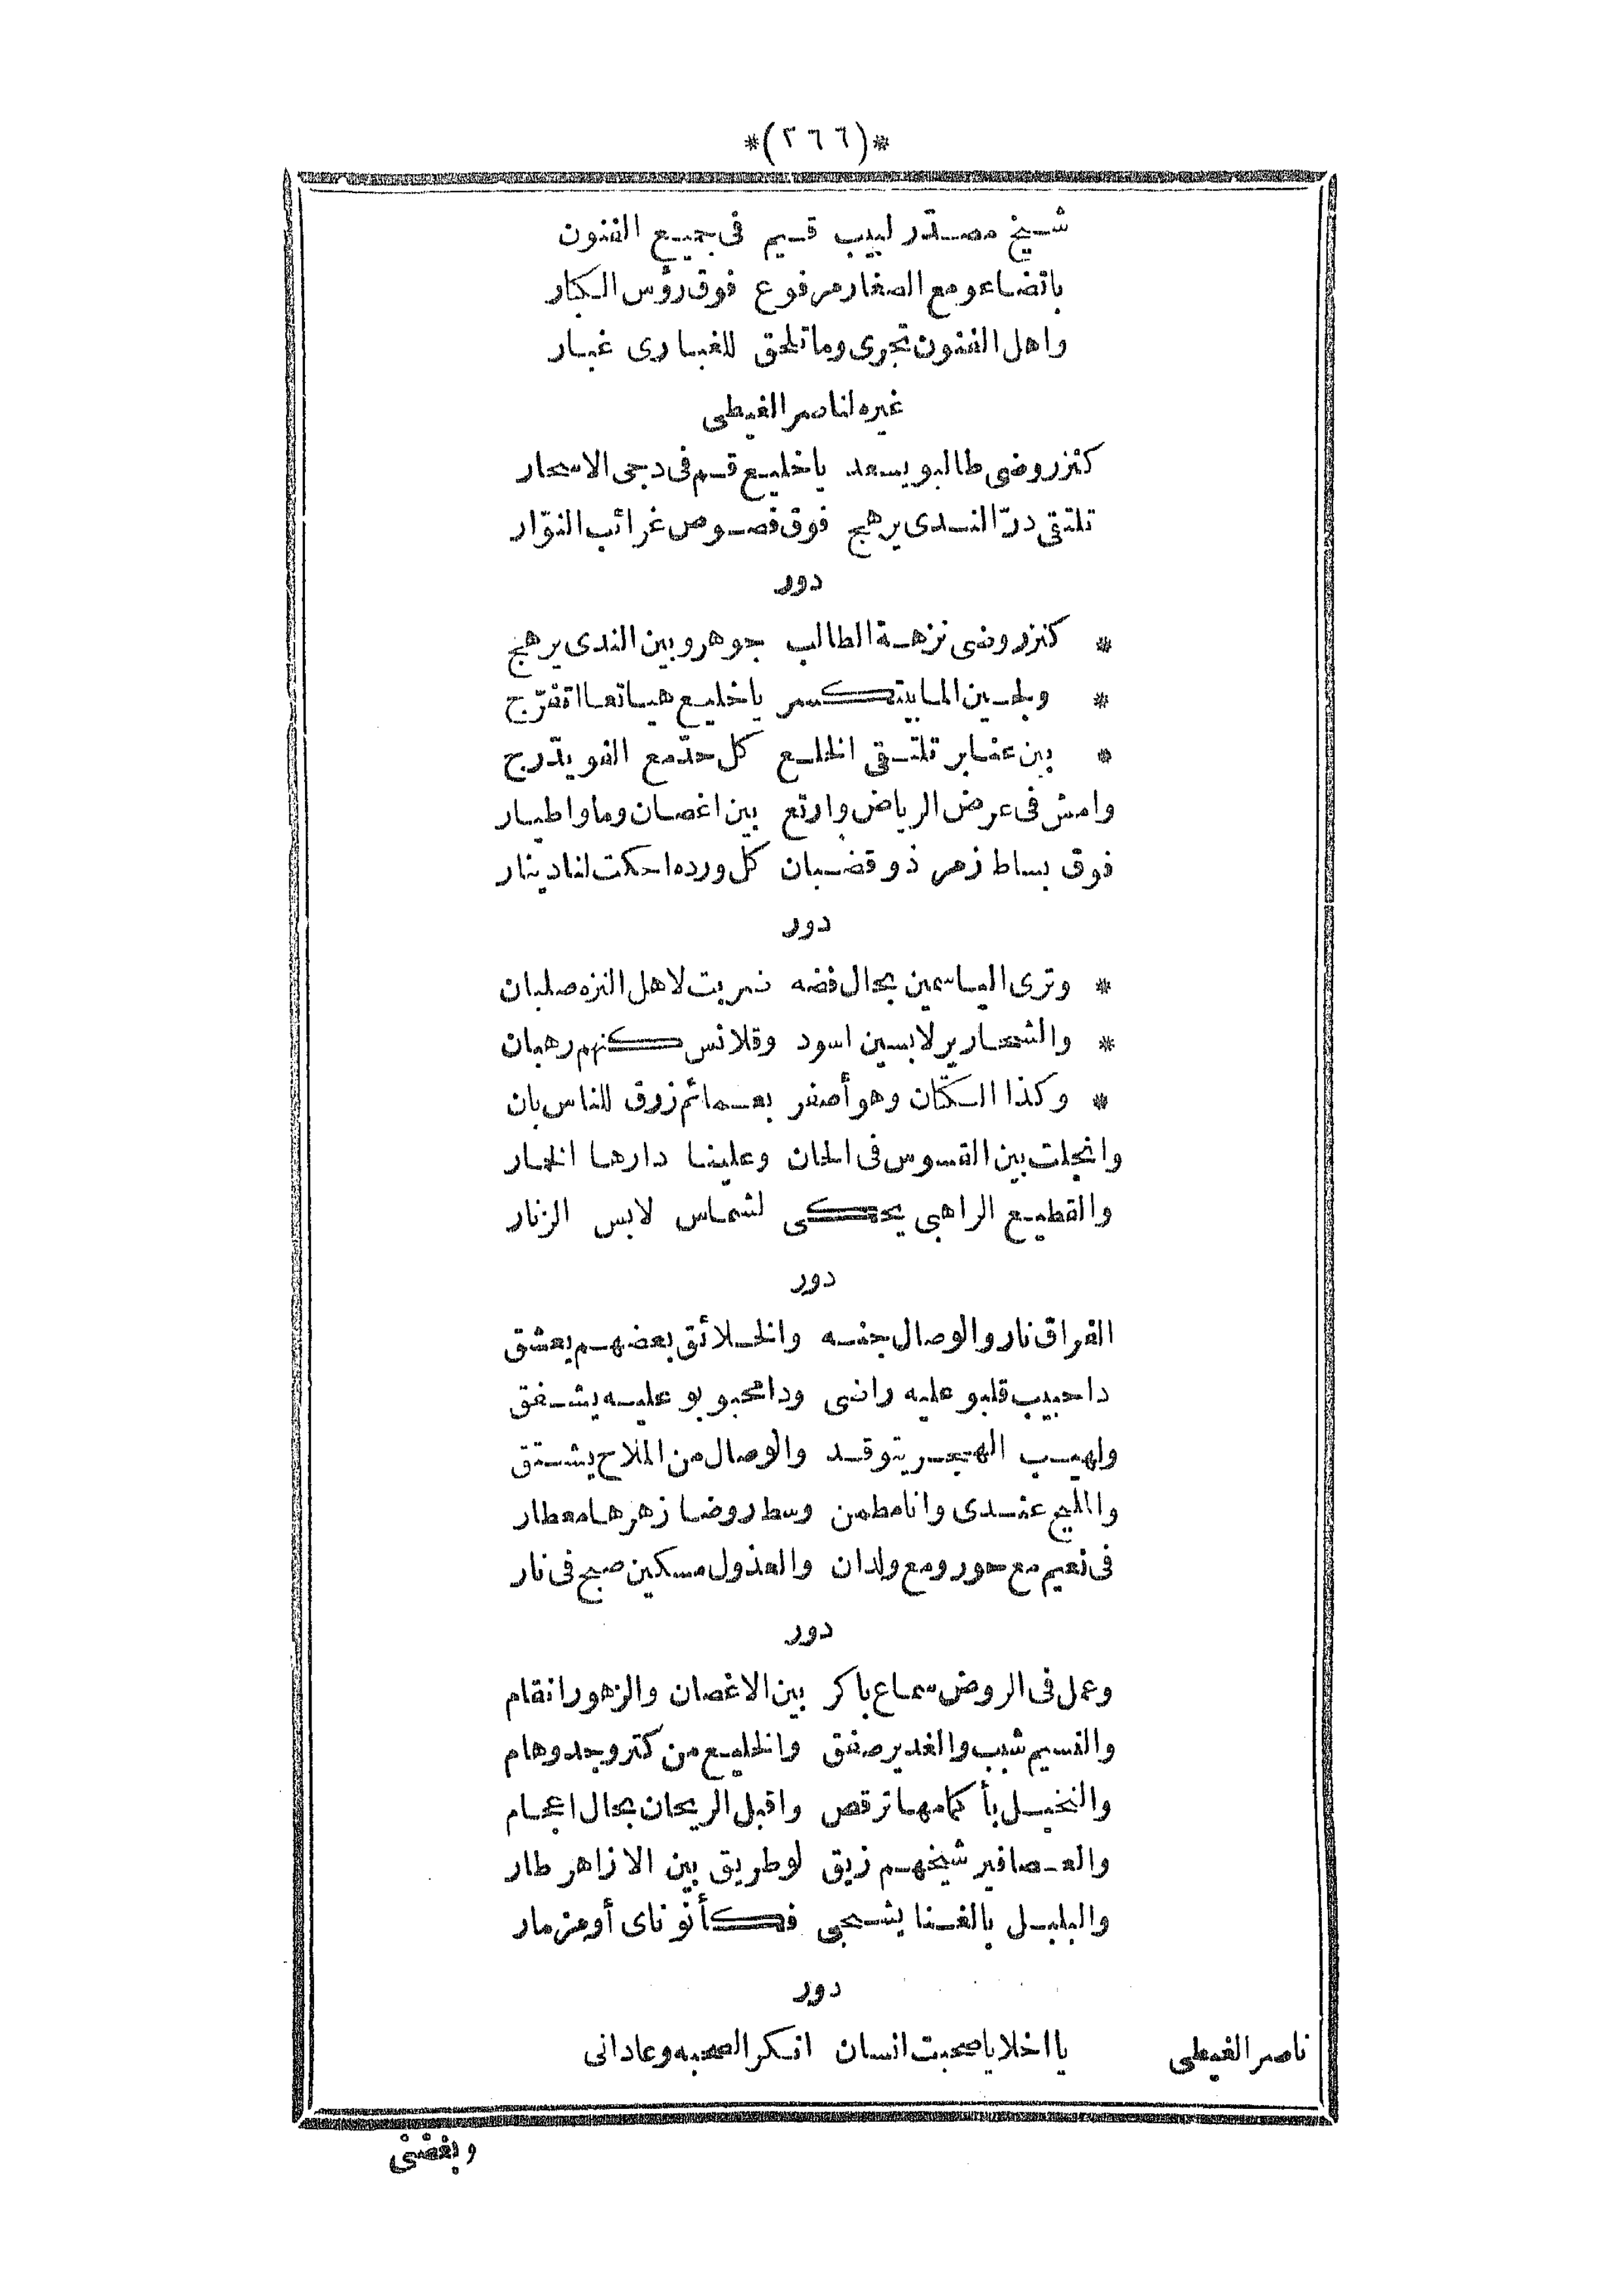 *(٢٦٦)*
شيخ مصدّر لبيب قيم فى جميع الفنون
باتضاعو مع الصغار مرفوع فوق رؤس الكبار
واهل الفنون تجرى وما تلحق للغبارى غبار
غيره لناصر الغيطى
كنزروضى طالبو يسعد ياخليع قم فى دجى الاسحار
تلتقى درّ الندى يرهج فوق فصوص غرائب النوّار
دور
* كنزروضى نزهة الطالب جوهرو بين الندى يرهج
* ولجين الما بيتكسر ياخليع هيا تعا اتفرّج
* بين عنابر تلتقى الخلع كل حدّ مع الفو يدّرج
وامش فى عرض الرياض وارتع بين اغصان وما واطيار
فوق بساط زهر ذو قضبان كل ورده احكت لنا دينار
دور
* وترى الياسمين بحال فضه ضربت لاهل النزه صلبان
* والشحارير لابسين اسود وقلانس كنهم رهبان
* وكذا الكتان وهو أصفر بعمائم زرق للناس بان
وانجلت بين القسوس فى الحان وعلينا دارها الخمار
والقطيع الراهبى يحتكى لشماس لابس الزنار
دور
الفراق نار والوصال جنه والخلائق بعضهم يعشق
داحبيب قلبو عليه راضى ودا محبوبو عليه يشفق
ولهيب الهجر يتوقد والوصال من الملاح يشتق
والمليح عندى وانا مطمن وسط روضا زهرها معطار
فى نعيم مع حور ومع ولدان والعذول مسكين صبح فى نار
دور
وعمل فى الروض سماع باكر بين الاغصان والزهور انقام
والنسيم شبب والغدير صفق والخليع من كتر وجدو هام
والنخيل بأكمامها ترقص واقبل الريحان بحال اعجام
والعصافير شيخهم زيق لو طريق بين الازاهر طار
والبلبل بالغنا يشجى فكأنو ناى أو مزمار
دور
يا اخلايا صحبت انسان انكر الصحبه وعادانى
ناصر الغيطى
وبغضنى